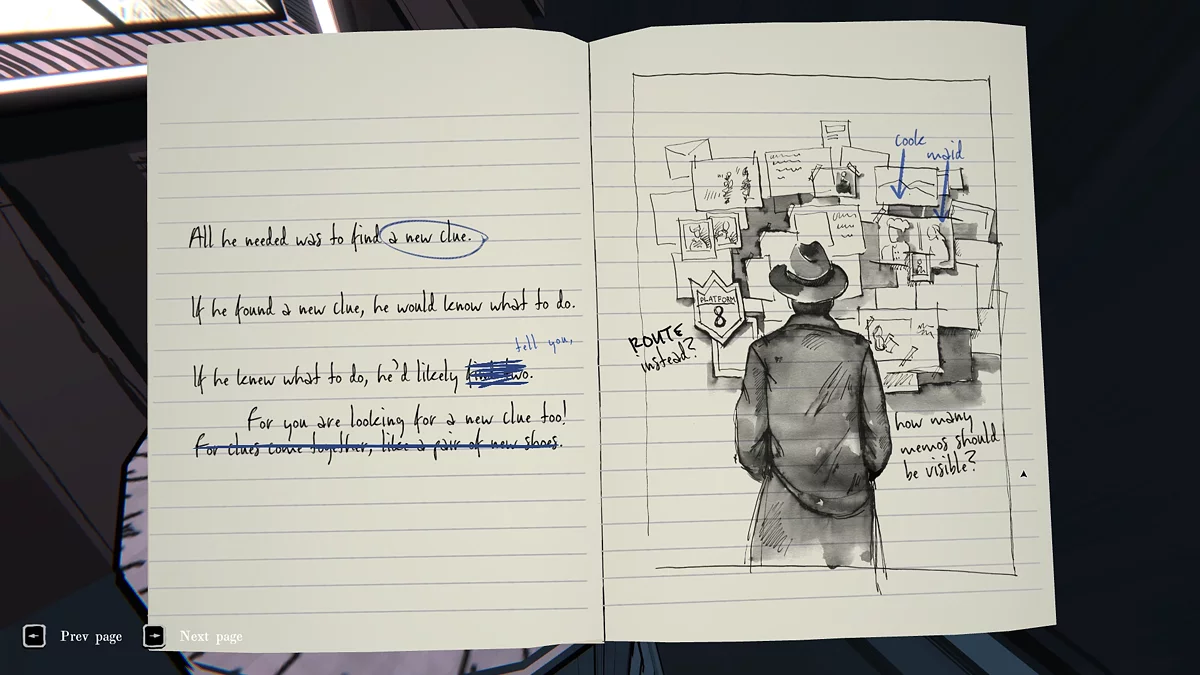 All he needed was to find a new clue.
If he found a new clue, he would know what to do.
tell you,
If he knew what to do, he'd likely
For you are looking for a new clue too!
For clues come together, like a pair of new shoes.
cook
maid
PLATFORM
8
ROUTE
instead?
how many
memos should
be visible?
Prev page
Next page